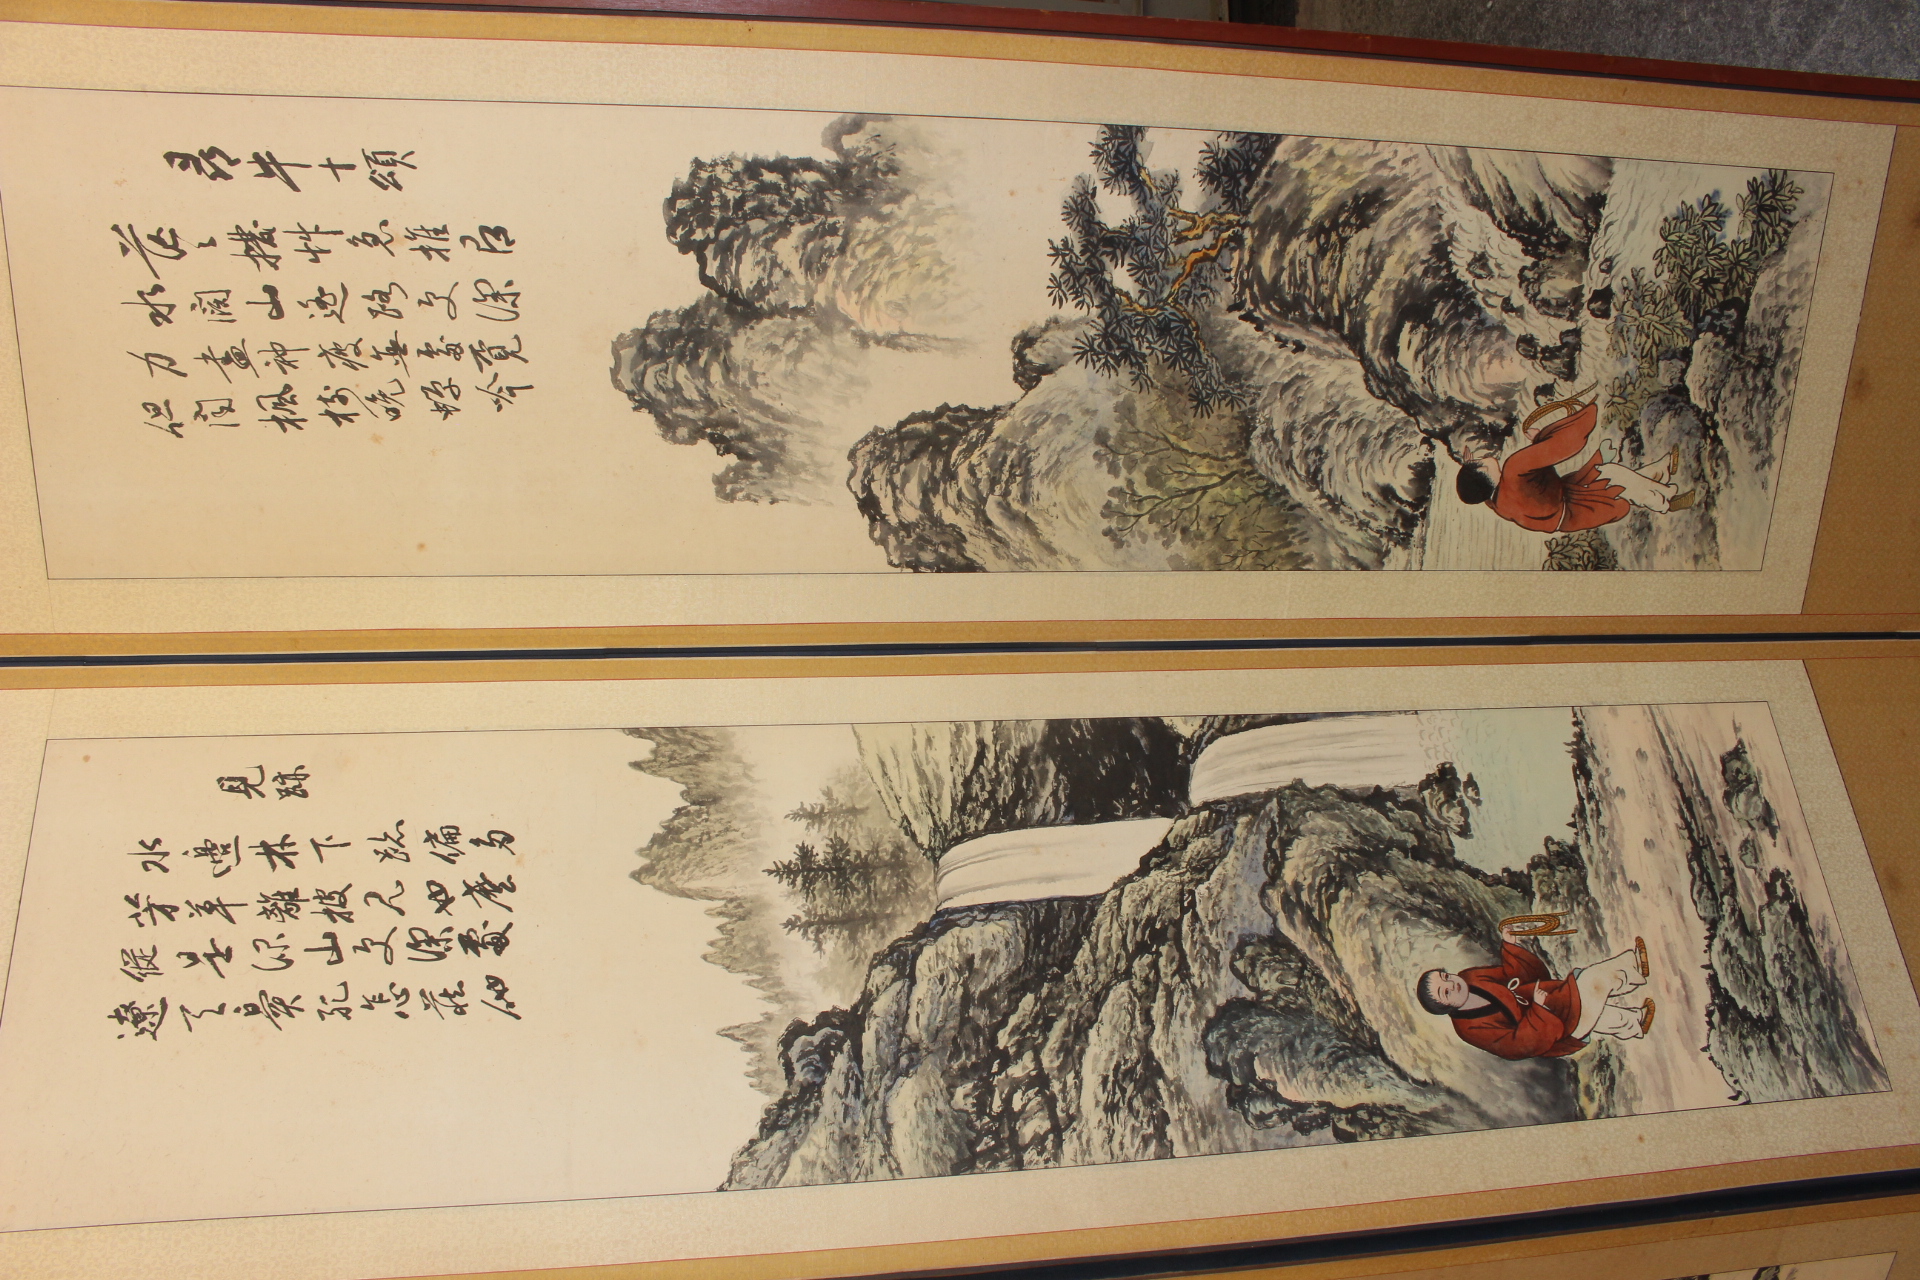 尋牛十頌
茫〻撥艸急推尋
水闊山遙路更深
力盡神疲無處覓
但聞楓樹晩蟬吟
見跡
水邊林下跡偏多
芳草離披見也麽
縱是深山更深處
遼天鼻孔怎藏他